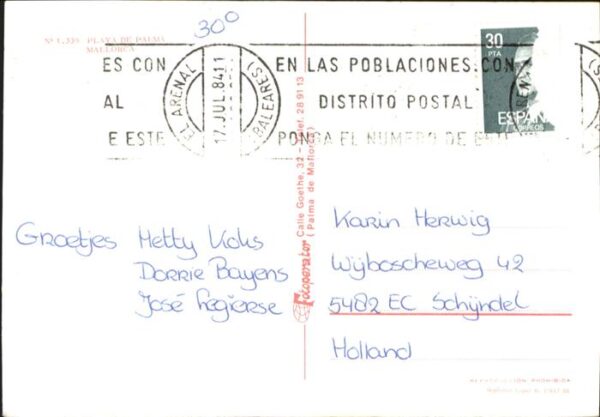 30°
Nº 1.339 PLAYA DE PALMA
MALLORCA
ES CON
AL
E ESTE
EL ARENAL
17.JUL.84.11
(BALEARES)
EN LAS POBLACIONES CON
DISTRITO POSTAL
PONGA EL NUMERO DE
30
PTA
ESPAÑA
CORREOS
Fotoperator Calle Goethe, 32 - Telef. 28 91 13
( Palma de Mallorca )
Groetjes Hetty Koks
Dorrie Bayens
José Legierse
Karin Herwig
Wijboscheweg 42
5482 EC Schijndel
Holland
REPRODUCCION PROHIBIDA